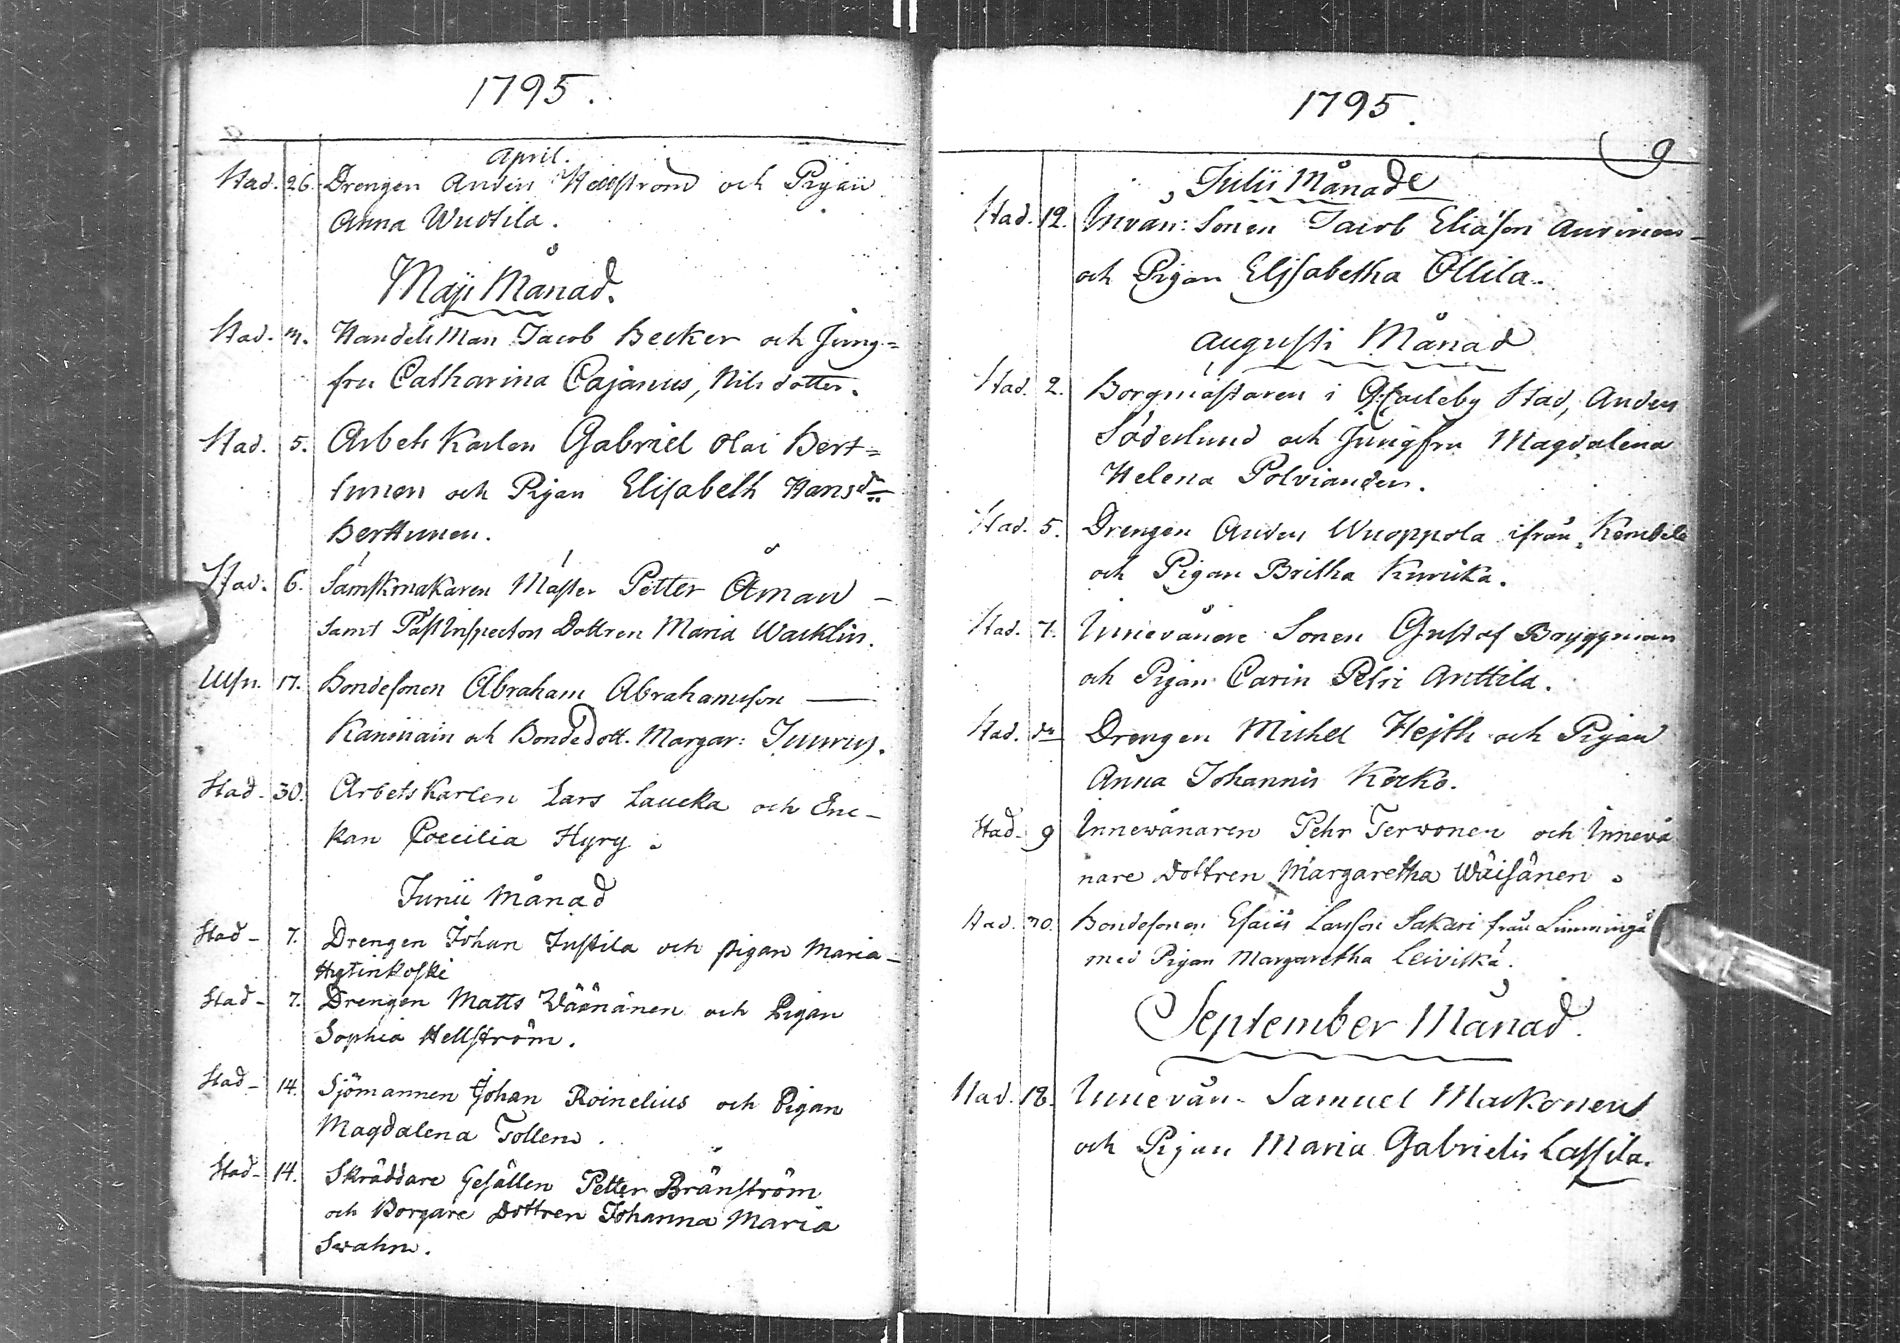 1795.
April.
Stad. 26. Drengen Anders Hellström och Pigan
Anna Wuotila.
Maji Månad.
Stad. 3. Handels Man Jacob Becker och Jung=
fru Catharina Cajanus, Nils dotter.
Stad. 5. Arbets Karlen Gabriel Olai Bert=
tunen och Pigan Elisabeth Hansdr
Berttunen.
Stad. 6. Sämskmakaren Mäster Petter Åman –
samt Påst Inspectors Dottren Maria Wacklin.
Ulsn. 17. Bondesonen Abraham Abrahamsson —
Kaninain och Bondedott. Margar: Juurus.
Stad. 30. Arbetskarlen Lars Laucka och En-
kan Coecilia Hyry.
Junii Månad
Stad – 7. Drengen Johan Justila och pigan Maria –
Hytinkoski
Stad – 7. Drengen Matts Väänänen och Pigan
Sophia Hellström.
Stad – 14. Sjömannen Johan Roinelius och Pigan
Magdalena Tollen.
Stad – 14. Skräddare Gesällen Petter Bränström
och Borgare Dottren Johanna Maria
Swahn.
1795.
9
Julii Månad
Stad. 12. Invån: Sonen Jacob Eliasson Aurinen –
och Pigan Elisabetha Ollila.
Augusti Månad
Stad. 2. Borgmästaren i G. Carleby Stad, Anders
Söderlund och Jungfru Magdalena
Helena Polviander.
Stad. 5. Drengen Anders Wuoppola ifrån Kembele
och Pigan Britha Kurika.
Stad. 7. Innevånare Sonen Gustaf Bryggman
och Pigan Carin Petri Anttila.
Stad. do Drengen Michel Hejth och Pigan
Anna Johannis Kocko.
Stad. 9 Innewånaren Pehr Tervonen och Innevå
nare Dottren Margaretha Wäisänen.
Stad. 30. Bondesonen Esaias Larsson Sakari från Limmingå
med Pigan Margaretha Leiviskä.
September Månad.
Stad. 18. Innevån. Samuel Markonen
och Pigan Maria Gabrielis Lassila.